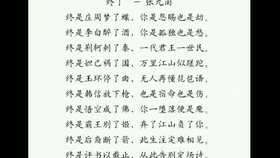 终了 - 张九南
终是庄周梦了蝶，你是恩赐也是劫。
终是李白醉了酒，你是孤独也是愁。
终是荆轲刺了秦，一代君王一世民。
终是妲己祸了国，万里江山似蹉跎。
终是玉环停了曲，无人再懂琵琶语。
终是韩信放下枪，也是宿命也是伤。
终是悟空成了佛，你一堕落便是魔。
终是霸王别了姬，弃了江山负了你。
终是后裔断了箭，此生注定难相见。
终是评书以截止，从此告别定场诗。